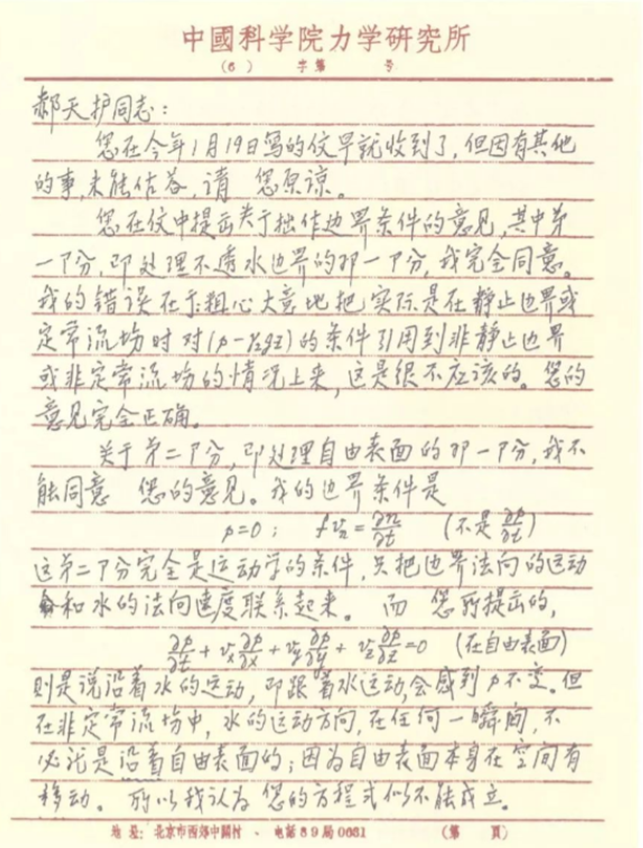 中國科学院力学研究所
(6) 字第 号
郝天护同志:
您在今年1月19日写的信早就收到了,但因有其他
的事,未能作答,请 您原谅。
您在信中提出关于拙作边界条件的意见,其中第
一下分,即处理不透水边界的那一下分,我完全同意。
我的错误在于粗心大意地把实际是在静止边界或
定常流场时对(p-γ₂gz)的条件引用到非静止边界
或非定常流场的情况上来,这是很不应该的。您的
意见完全正确。
关于第二下分,即处理自由表面的那一下分,我不
能同意 您的意见。我的边界条件是
p=0; fvₙ=∂n/∂t (不是∂p/∂t)
这第二下分完全是运动学的条件,只把边界法向的运动
和水的法向速度联系起来。 而 您所提出的,
∂p/∂t + vₓ∂p/∂x + vᵧ∂p/∂y + v_z∂p/∂z=0 (在自由表面)
则是说沿着水的运动,即跟着水运动,会感到p不变。但
在非定常流场中,水的运动方向,在任何一瞬间,不
必讬是沿着自由表面的;因为自由表面本身在空间有
移动。 所以我认为 您的方程式似不能成立。
地址:北京市西郊中關村 、 电話89局0631 (第 頁)